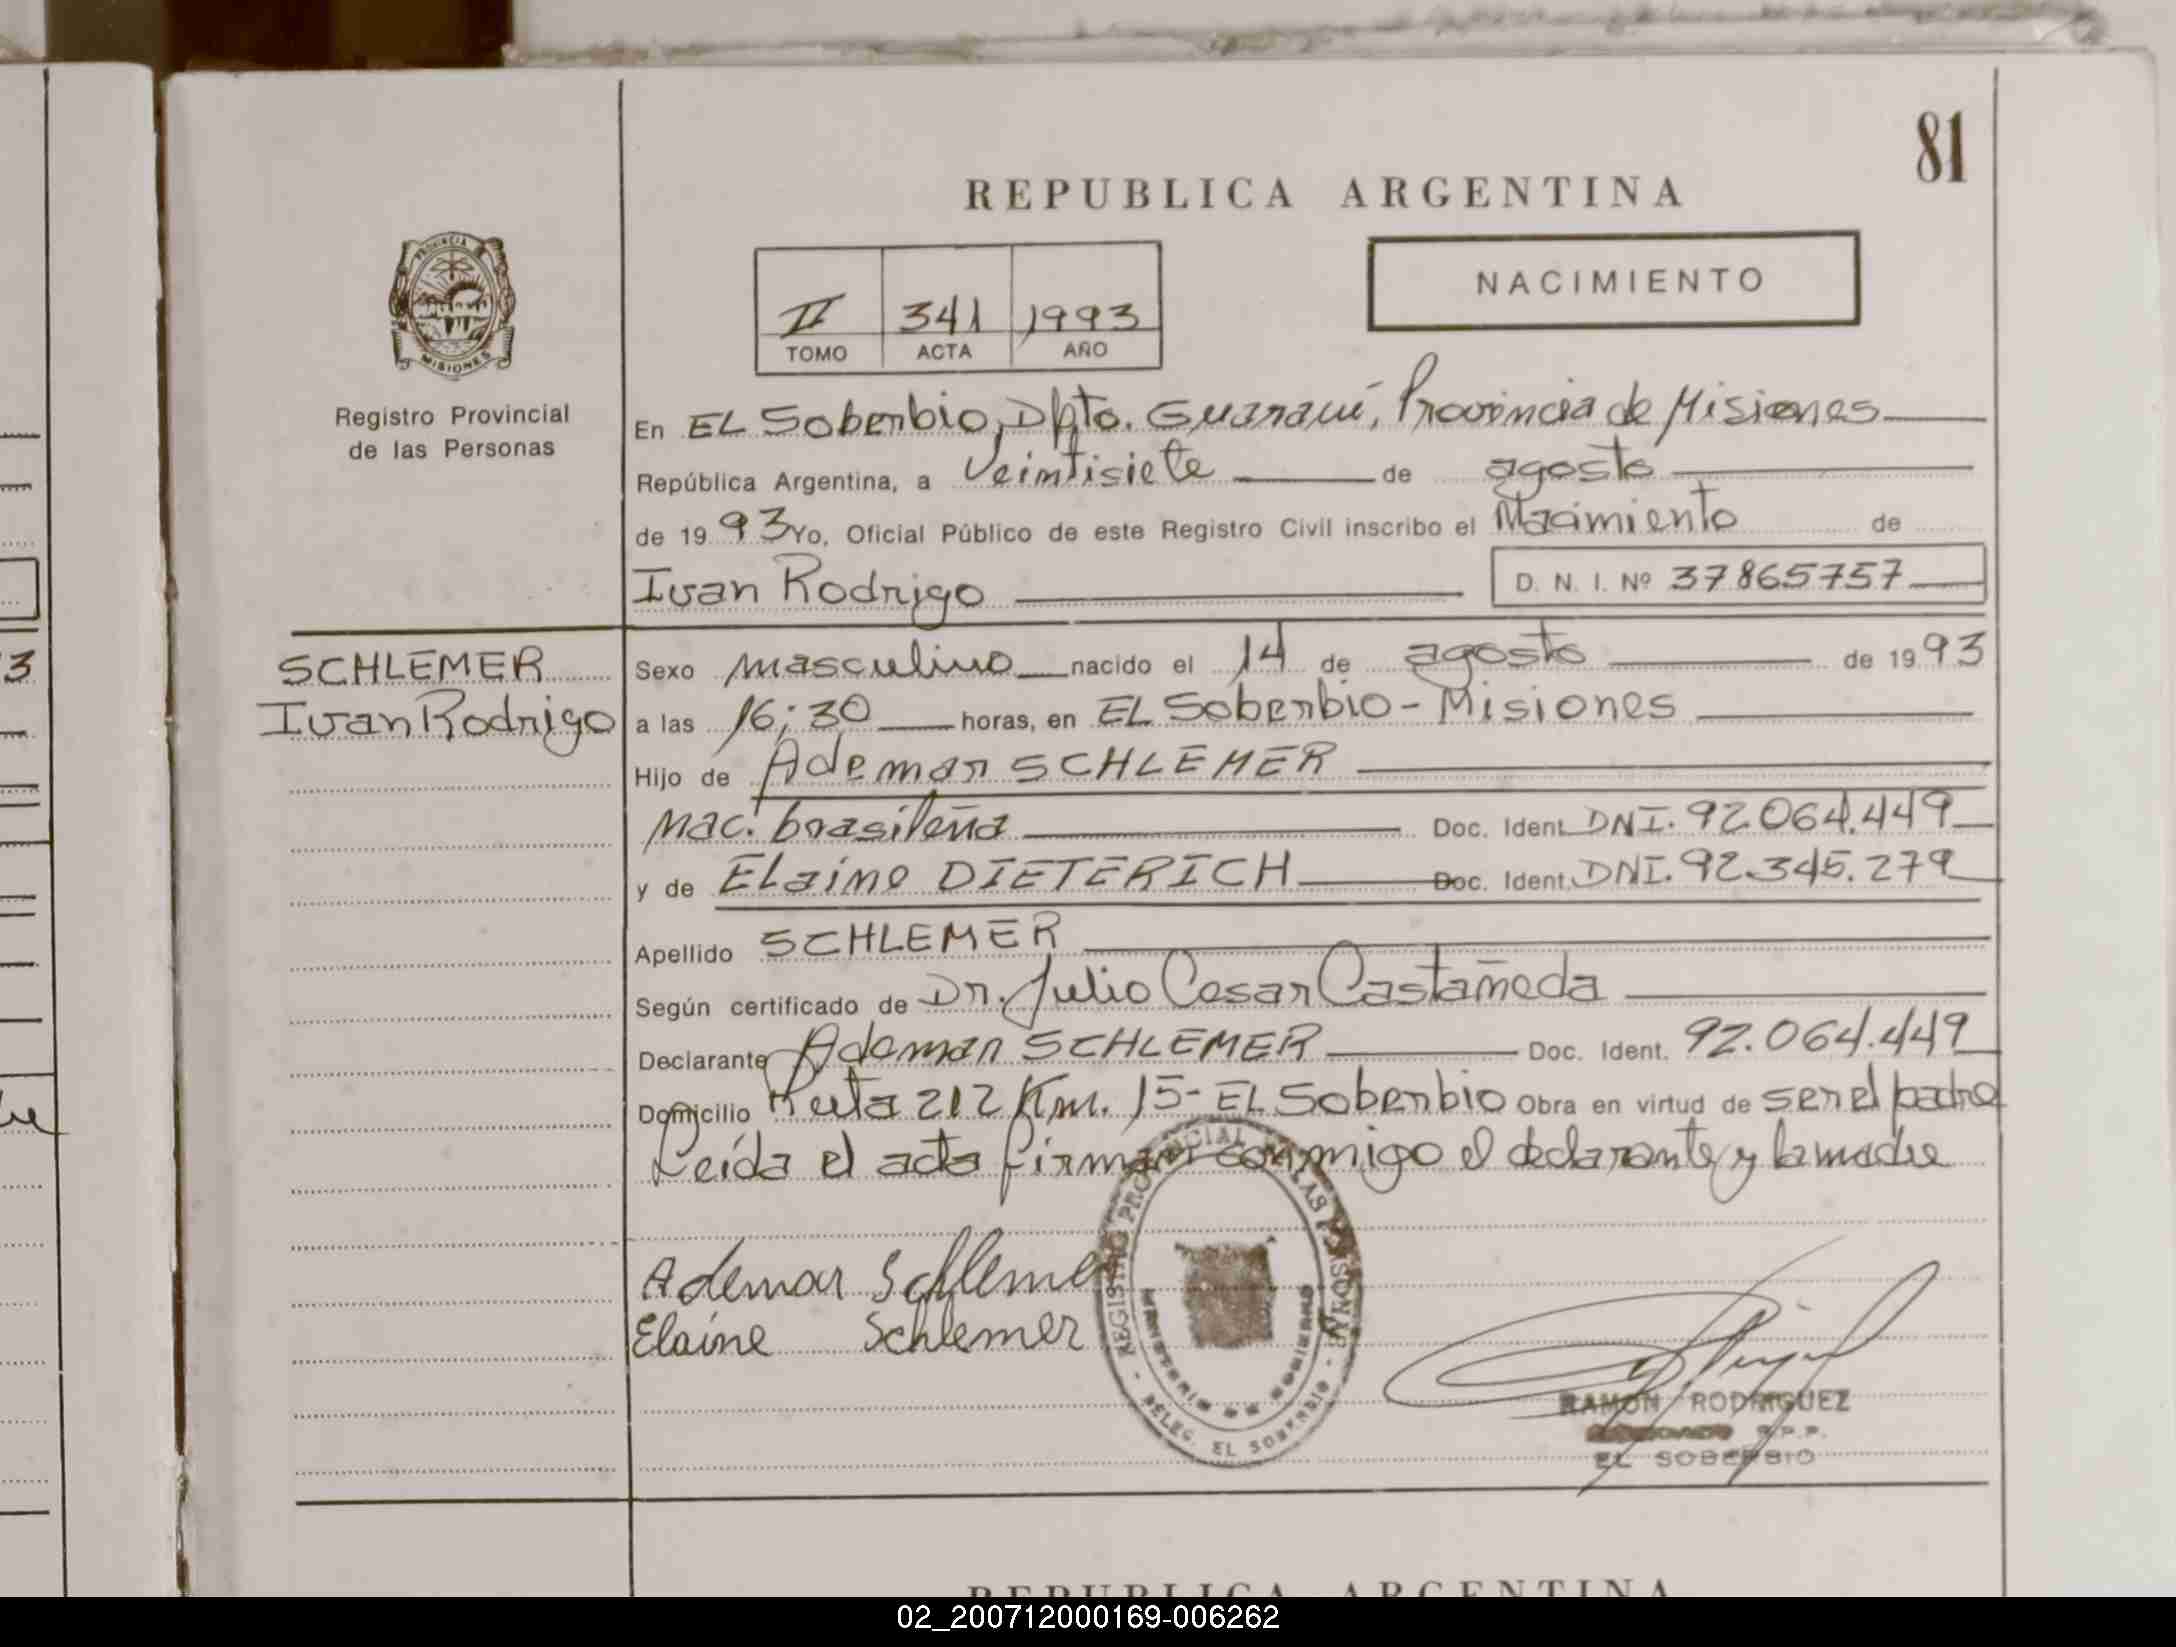 81
REPUBLICA ARGENTINA
PROVINCIA
MISIONES
Registro Provincial
de las Personas
II 341 1993
TOMO ACTA AÑO
NACIMIENTO
En EL Soberbio, Dpto. Guaraní, Provincia de Misiones
República Argentina, a Veintisiete de agosto
de 1993 Yo, Oficial Público de este Registro Civil inscribo el Nacimiento de
Ivan Rodrigo D. N. I. Nº 37865757
SCHLEMER
Ivan Rodrigo
Sexo masculino nacido el 14 de agosto de 1993
a las 16:30 horas, en EL Soberbio - Misiones
Hijo de Ademar SCHLEMER
Nac. brasileña Doc. Ident. DNI. 92.064.449
y de Elaine DIETERICH Doc. Ident. DNI. 92.345.279
Apellido SCHLEMER
Según certificado de Dr. Julio Cesar Castañeda
Declarante Ademar SCHLEMER Doc. Ident. 92.064.449
Domicilio Ruta 212 Km. 15- EL Soberbio Obra en virtud de ser el padre
Leída el acta firman conmigo el declarante y la madre
Ademar Schlemer
Elaine Schlemer
REGISTRO PROVINCIAL DE LAS PERSONAS
MINISTERIO DE GOBIERNO
- DELEG. EL SOBERBIO -
RAMON RODRIGUEZ
R.P.P.
EL SOBERBIO
REPUBLICA ARGENTINA
02_200712000169-006262